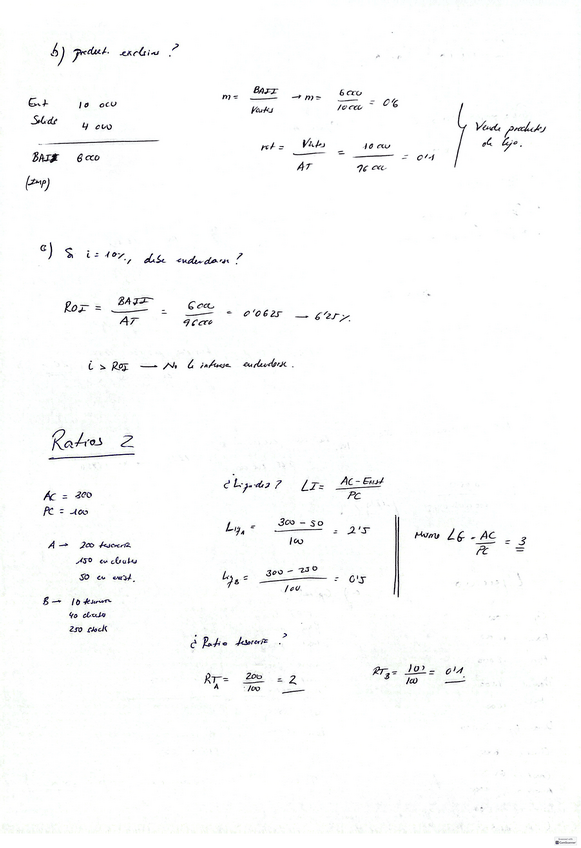 b) product. exclusivo ?
Ent 10 000
Salida 4 000
BAII 6 000
(Imp)
m = BAII / Ventas → m = 6 000 / 10 000 = 0'6
rot = Vntas / AT = 10 000 / 96 000 = 0'1
Vende productos
de lujo.
c) Si i = 10%, debe endeudarse ?
ROI = BAII / AT = 6 000 / 96 000 = 0'0625 → 6'25 %.
i > ROI → No le interesa endeudarse.
Ratios 2
AC = 300
PC = 100
A → 200 tesorería
150 en clientes
50 en exist.
B → 10 tesorería
40 clientes
250 stock
¿Liquidez? LI = AC - Exist / PC
Liq A = 300 - 50 / 100 = 2'5
Liq B = 300 - 250 / 100 = 0'5
Misma LG - AC / PC = 3
¿Ratio tesorería ?
RT A = 200 / 100 = 2
RT B = 10 / 100 = 0'1
CamScanner